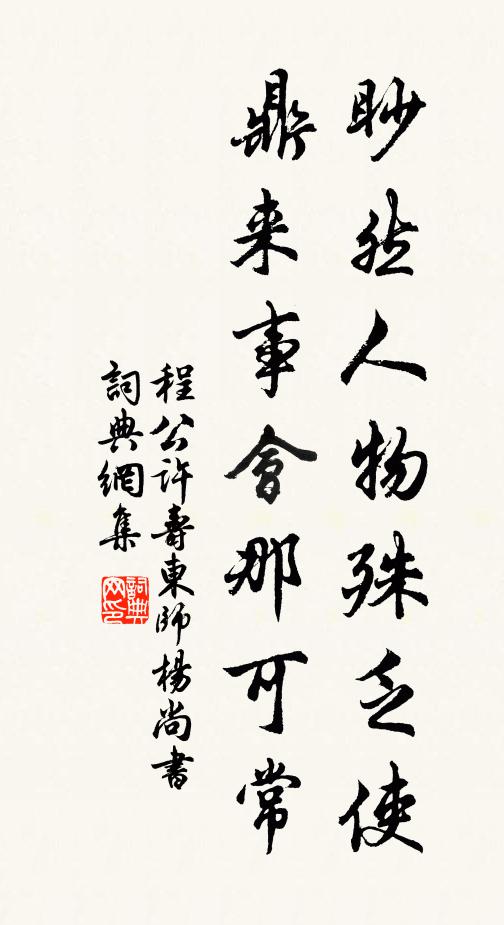 眇然人物殊乏使
鼎来事會那可常
程公許壽東師楊尚書
詞典網集
詞典
网印